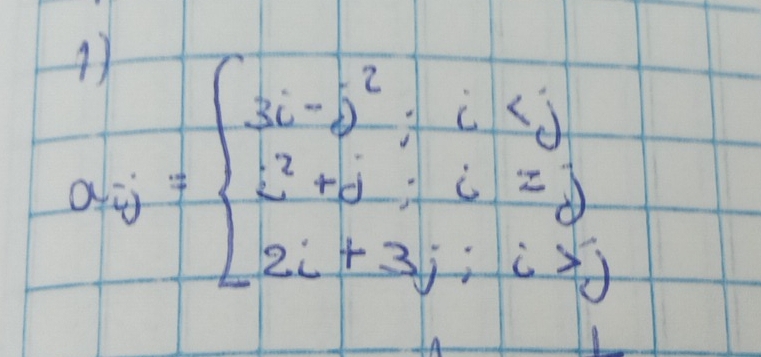 1)
a_ij = { 3i - j² ; i < j
i² + j ; i = j
2i + 3j ; i > j